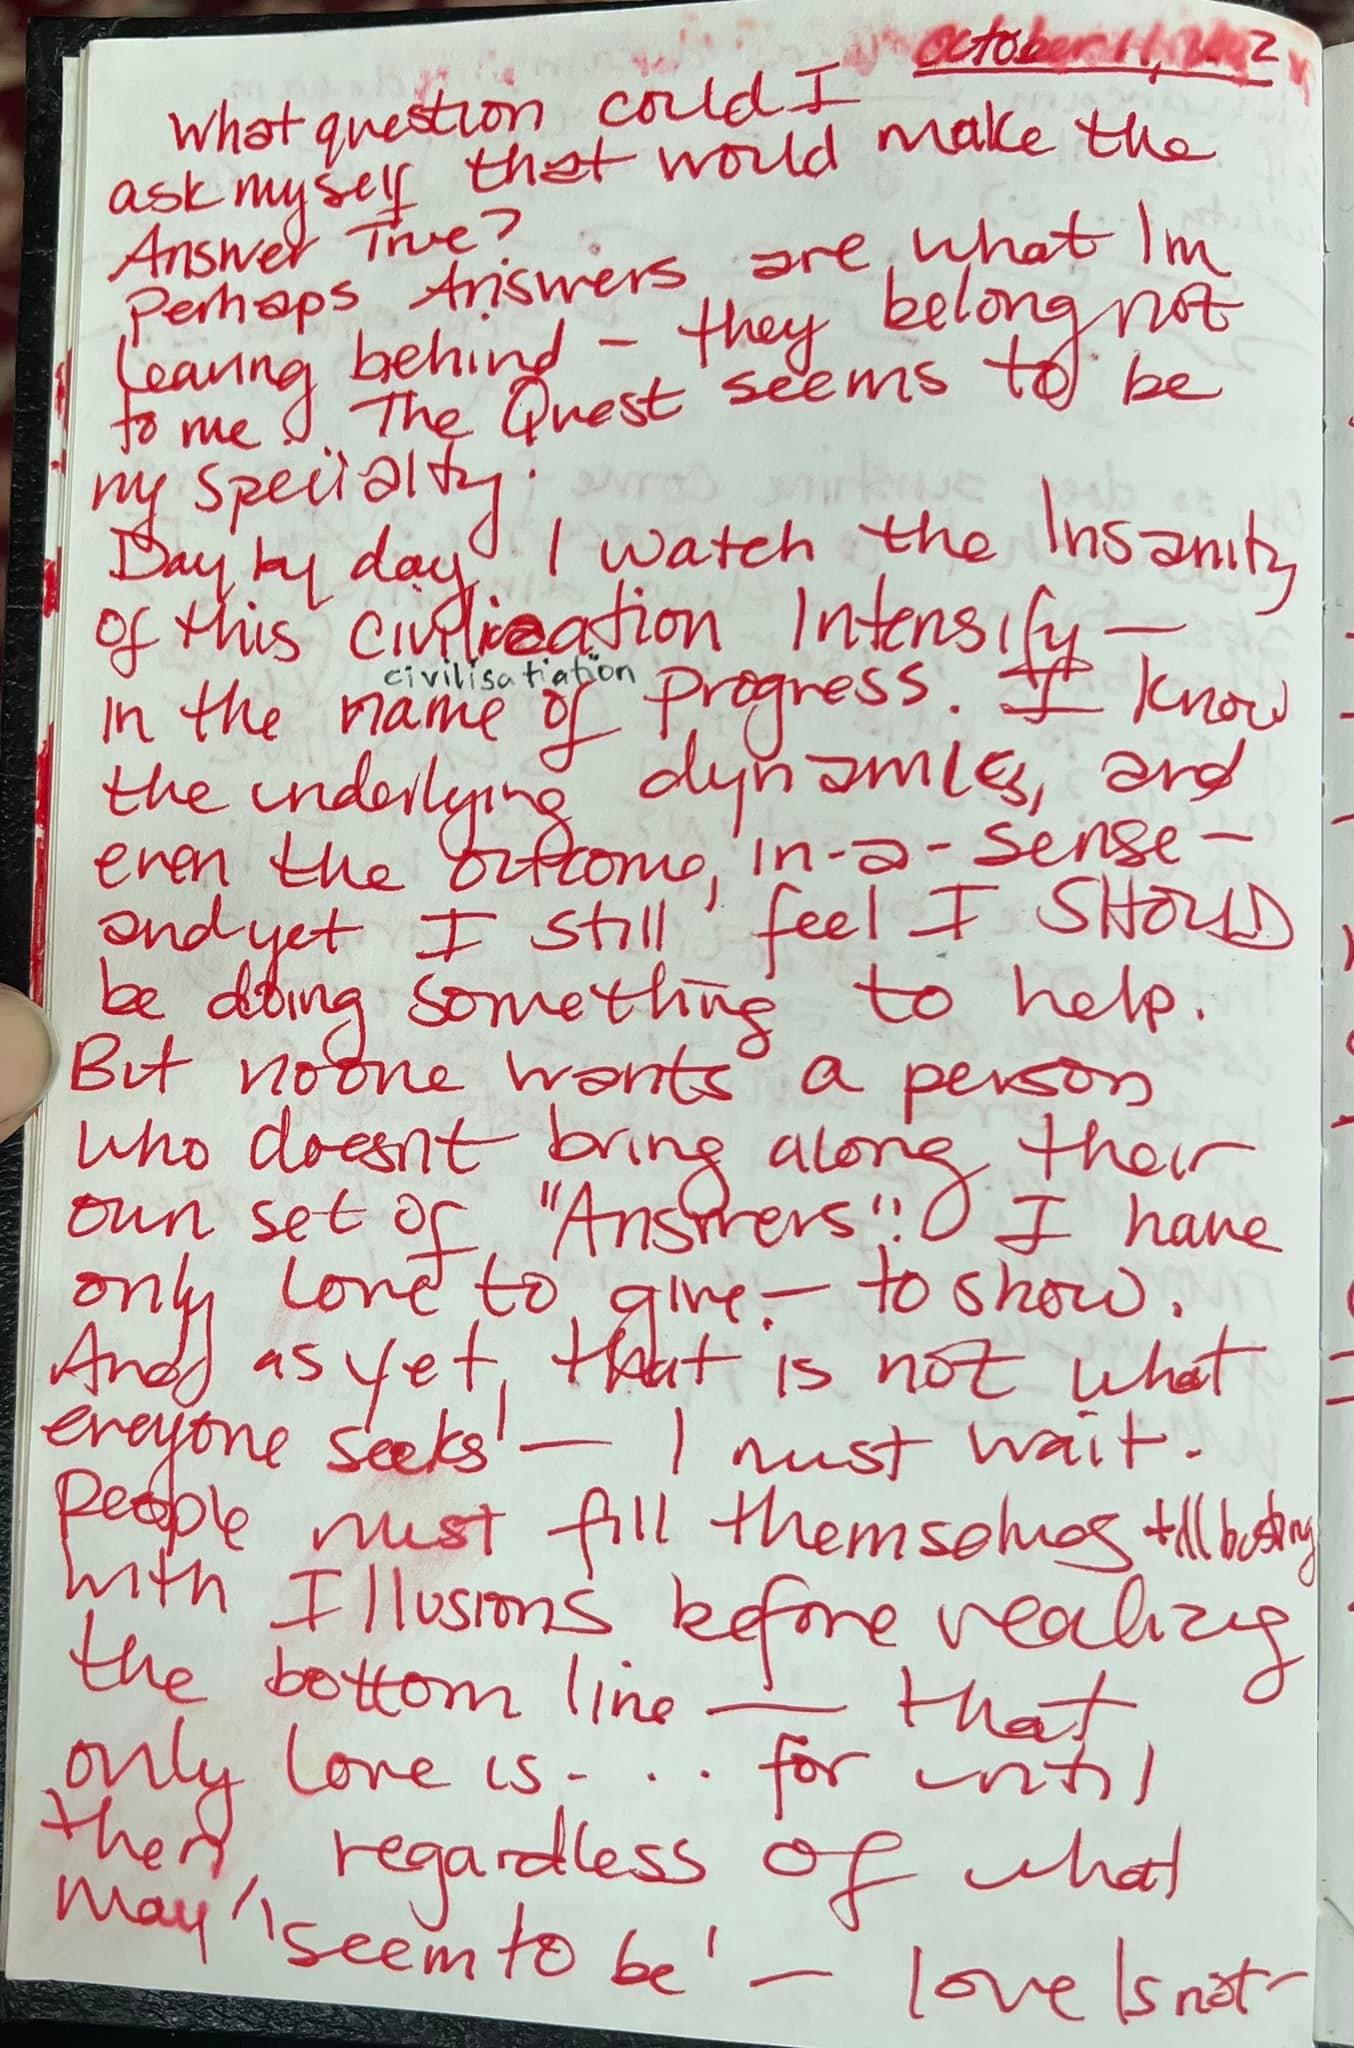 October 11, 2
What question could I
ask myself that would make the
Answer True?
Perhaps Answers are what Im
leaving behind – they belong not
to me. The Quest seems to be
my specialty.
Day by day I watch the Insanity
of this civilization Intensify —
civilisatiation
in the name of Progress. I know
the underlying dynamics, and
even the outcome, in-a-sense –
and yet I still feel I SHOULD
be doing something to help.
But noone wants a person
who doesnt bring along their
own set of "Answers"! I have
only love to give – to show.
And as yet, that is not what
everyone 'seeks' — I must wait.
People must fill themselves till busting
with Illusions before realizing
the bottom line — that
only love is . . . for until
then, regardless of what
may 'seem to be' — love Is not –